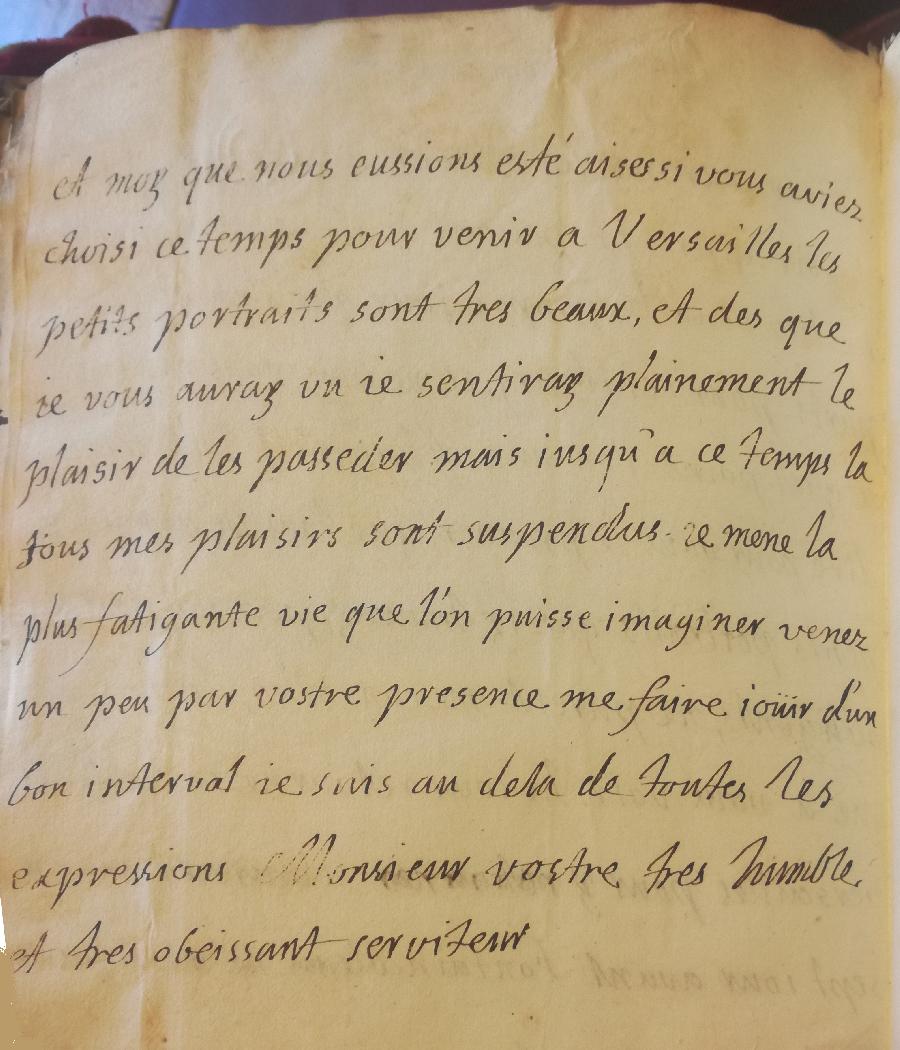 et moy que nous eussions esté aises si vous aviez
choisi ce temps pour venir a Versailles les
petits portraits sont tres beaux, et des que
ie vous auray vu ie sentiray plainement le
plaisir de les posseder mais iusqu'a ce temps la
tous mes plaisirs sont suspendus. ie mene la
plus fatigante vie que l'on puisse imaginer venez
un peu par vostre presence me faire ioüir d'un
bon interval ie suis au dela de toutes les
expressions Monsieur vostre tres humble
et tres obeissant serviteur